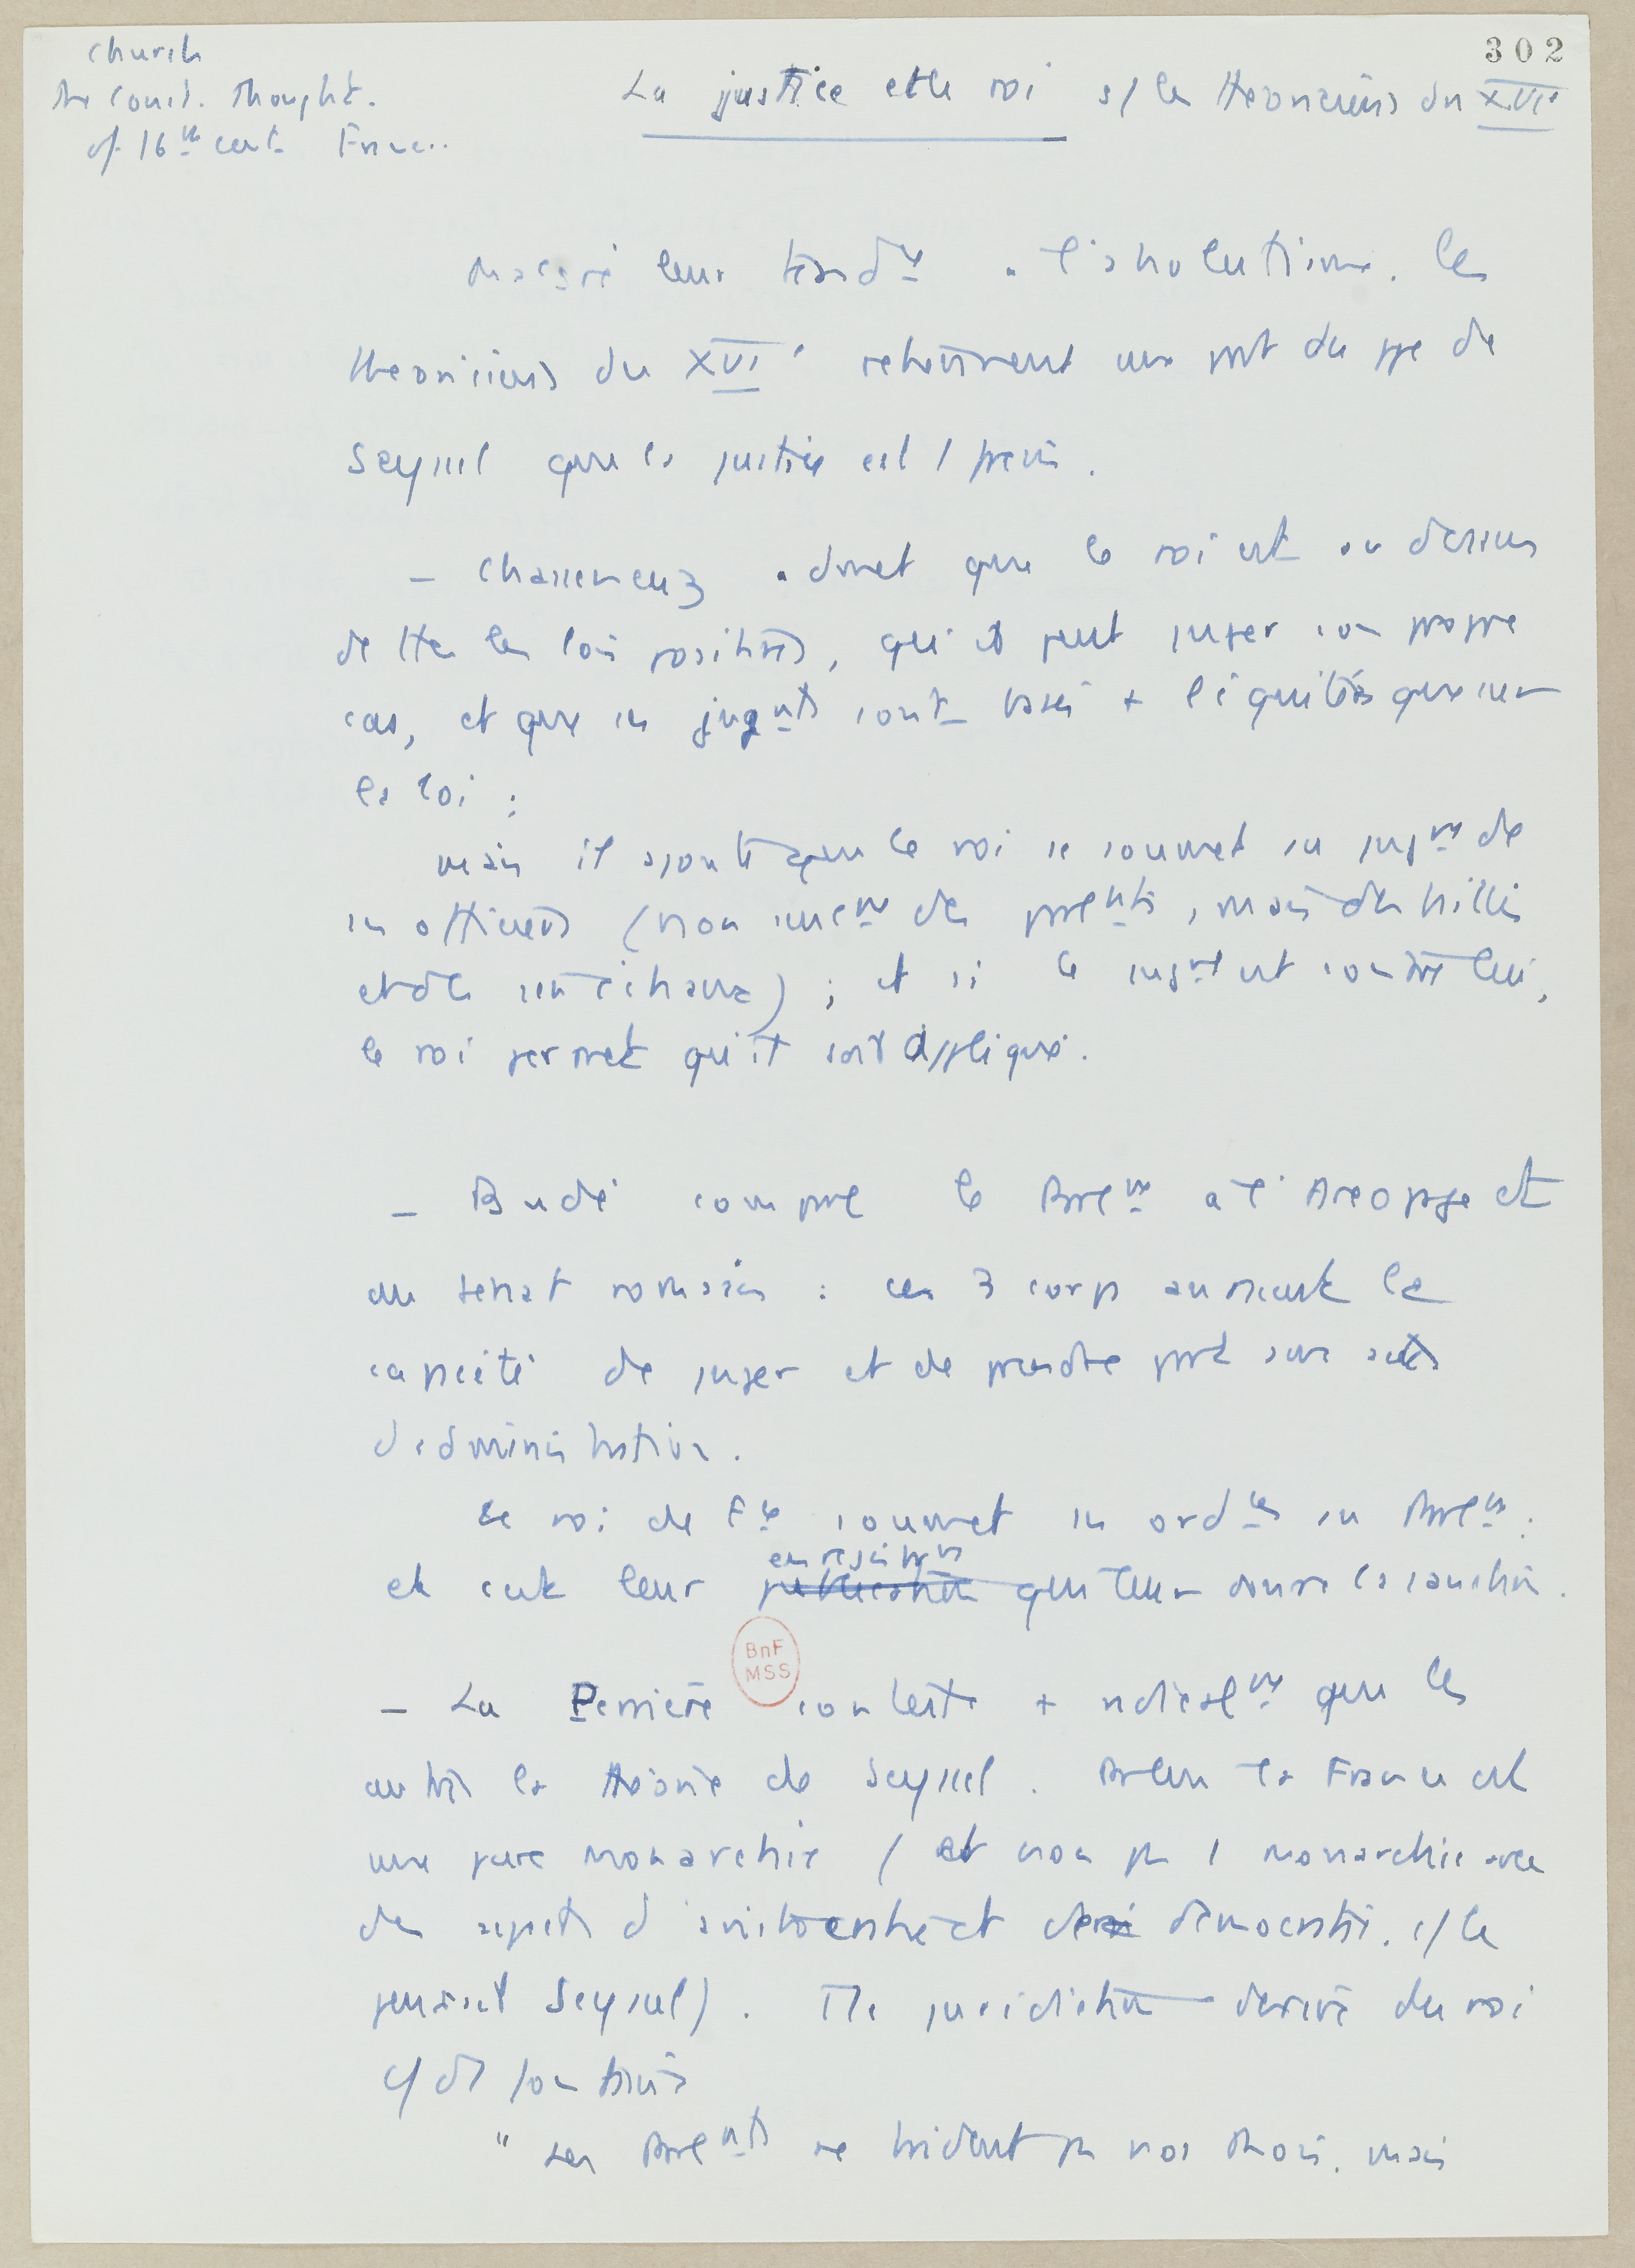 302
Church
The const. Thought.
of 16th cent. France.
La justice et le roi s/ les theoriciens du XVIe
Malgré leur tendce a l'absolutisme, les
theoriciens du XVIe retiennent une part du ppe de
Seyssel que la justice est 1 frein.
– Chasseneuz admet que le roi est au dessus
de ttes les lois positives, qu'il peut juger son propre
cas, et que ses jugmts sont basés + l'équité que sur
la loi ;
mais il ajoute que le roi se soumet au jugmt de
ses officiers (non seulemt des parlemts, mais des baillis
et des sénéchaux) ; et si le jugmt est contre lui,
le roi permet qu'il soit appliqué.
– Budé compare le Parlemt à l'Areopage et
au senat romain : ces 3 corps auraient la
capacité de juger et de prendre part aux actes
d'administration.
Le roi de Fce soumet ses ordces au Parlemt :
et c'est leur enregistrmt qui leur donne la sanction.
– La Perrière conteste + radicalemt que les
autres la théorie de Seyssel. Pr lui la France est
une pure monarchie (et non pas 1 monarchie avec
des aspects d'aristocratie et de démocratie, c/ le
pensait Seyssel). Tte juridiction derive du roi
c/ de son
BnF
MSS
" Les Parlemts ne brident pas nos Rois, mais